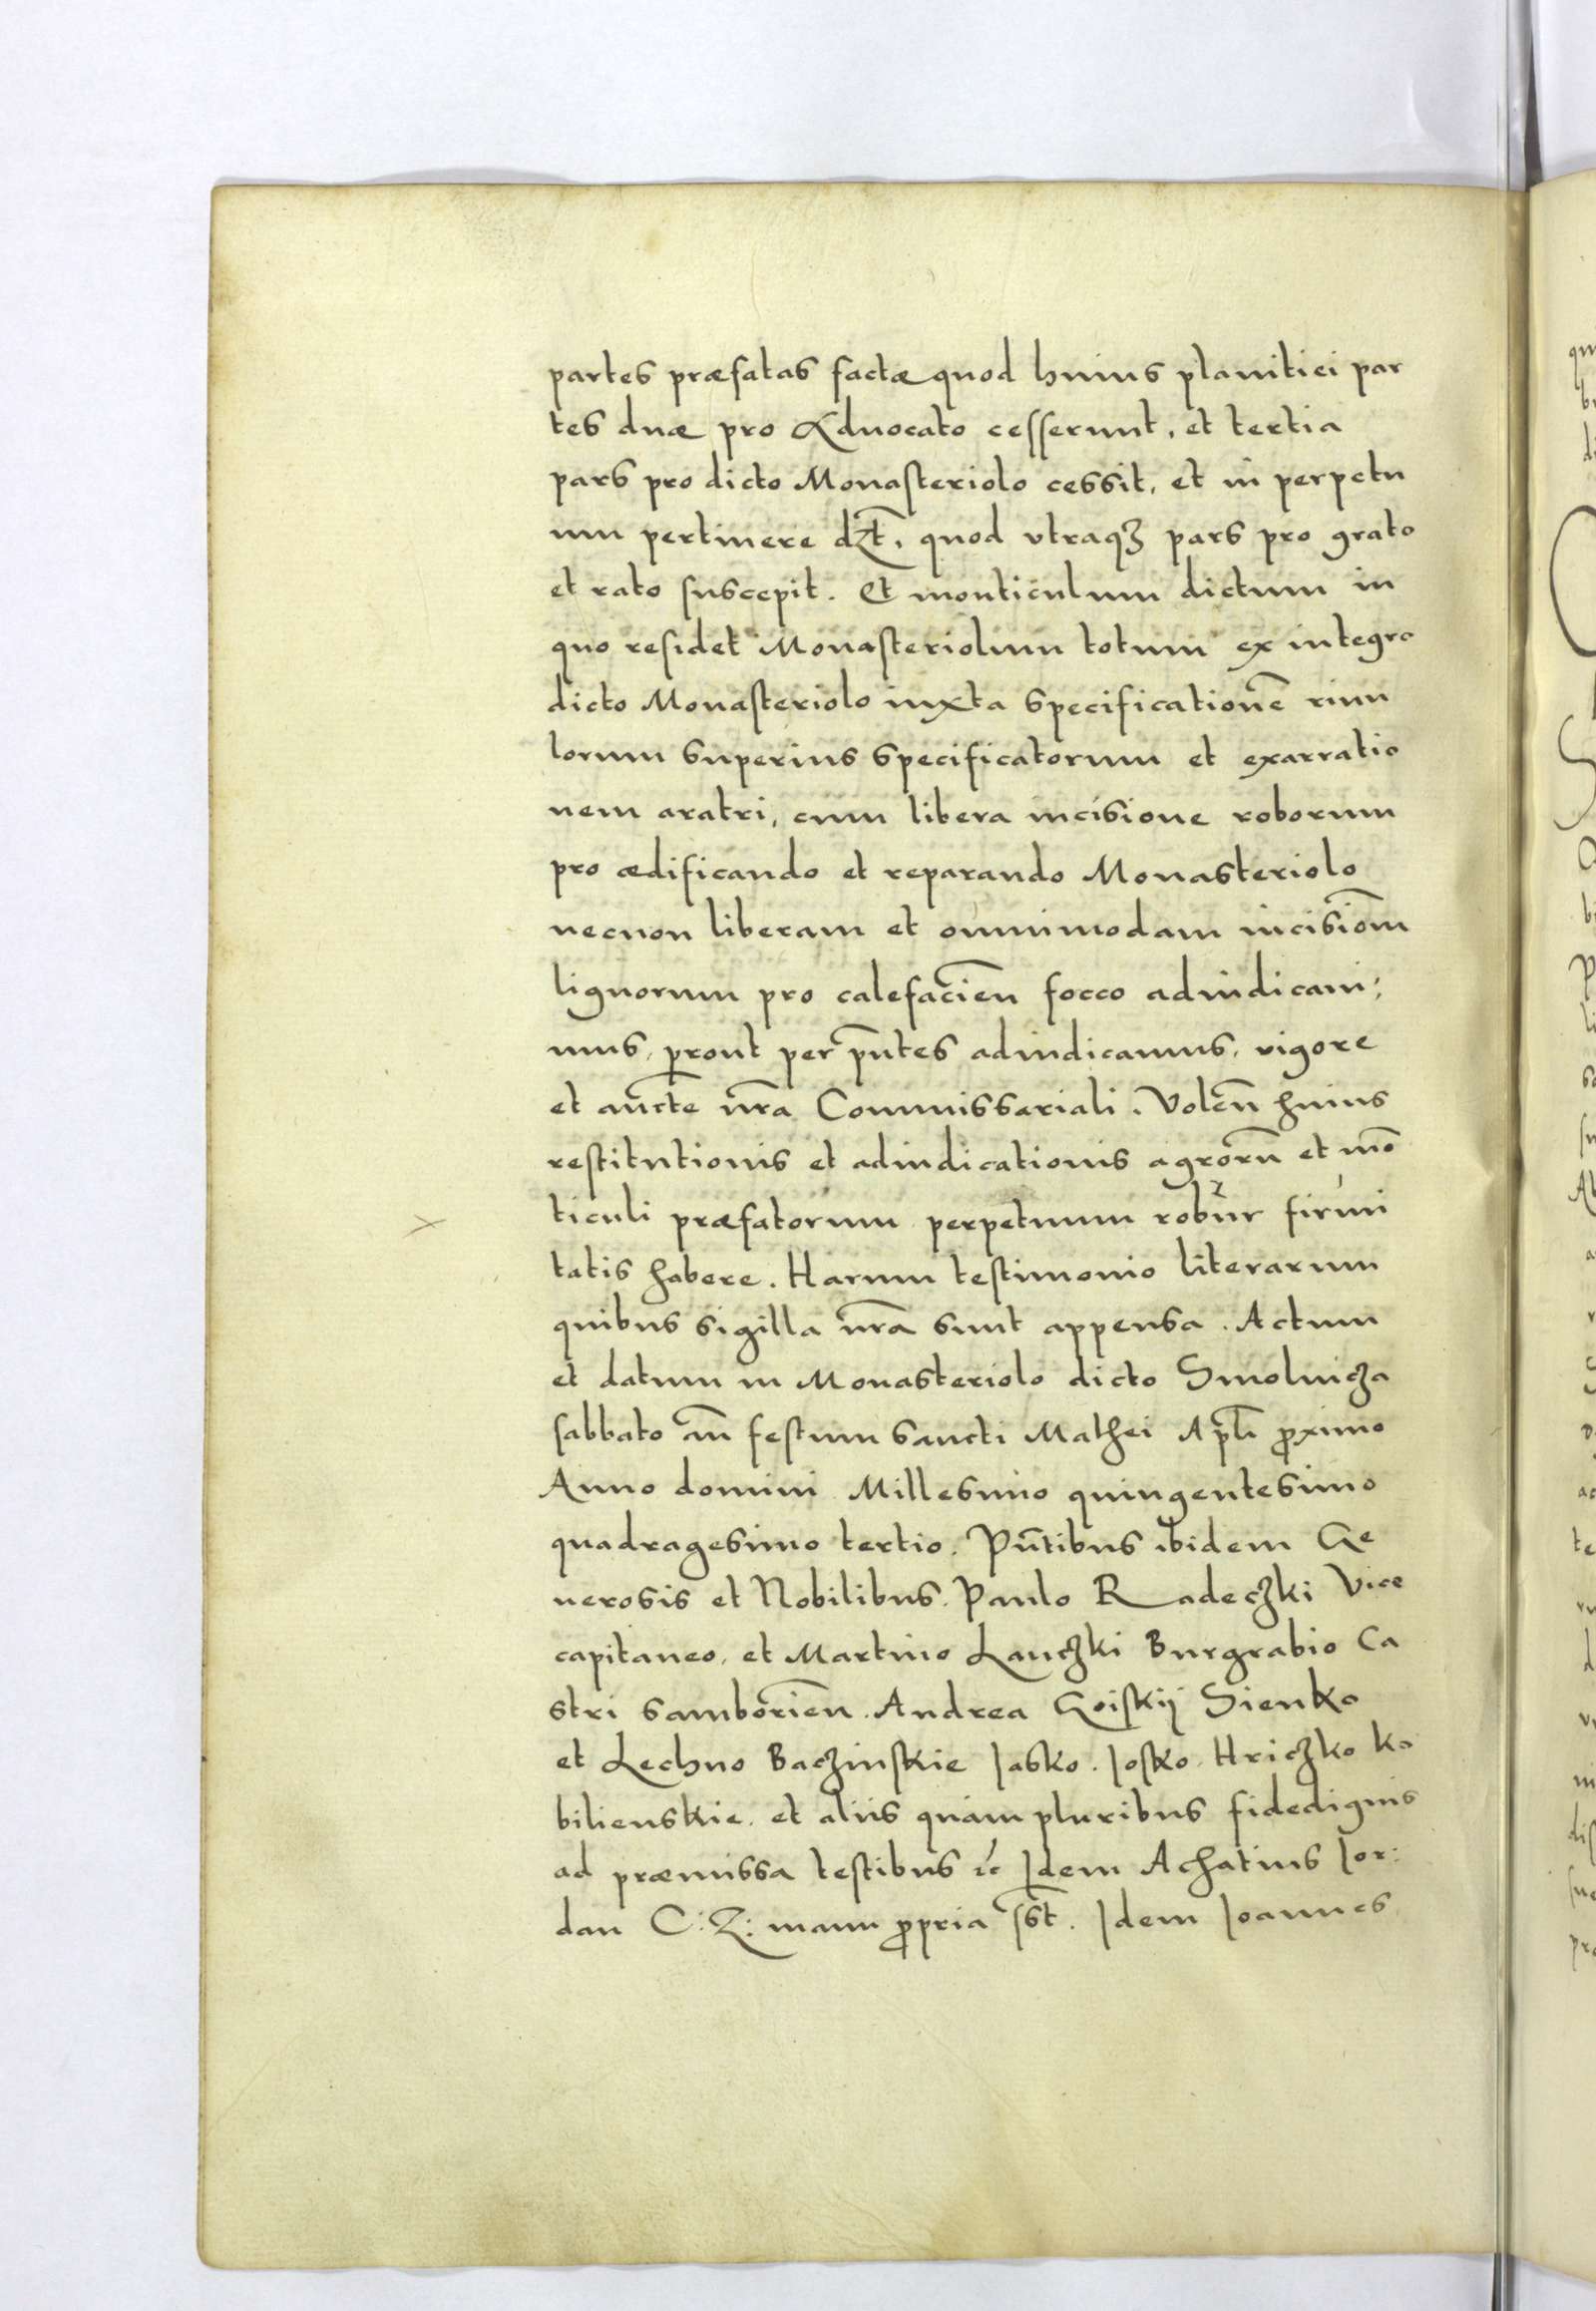 partes præfatas factæ quod huius planitiei par
tes duæ pro Aduocato cesserunt, et tertia
pars pro dicto Monasteriolo cessit, et in perpetu
um pertinere dꝫt̄, quod vtraqꝫ pars pro grato
et rato suscepit. Et monticulum dictum in
quo residet Monasteriolum totum ex integro
dicto Monasteriolo iuxta specificationē riuu
lorum superius specificatorum et exarratio
nem aratri, cum libera incisione roborum
pro ædificando et reparando Monasteriolo
necnon liberam et omnimodam incisiōm
lignorum pro calefacieñ focco adiudicaui:
mus, prout per p̄ntes adiudicamus, vigore
et auc̄te nr̄a Commissariali. Voleñ huius
restitutionis et adiudicationis agrorū et mō
ticuli præfatorum perpetuum robur firmi
tatis habere. Harum testimonio literarum
quibus sigilla nr̄a sunt appensa. Actum
et datum in Monasteriolo dicto Smolnicza
sabbato añ festum sancti Mathei Apl̄i proximo
Anno domini Millesimo quingentesimo
quadragesimo tertio. Pn̄tibus ibidem Ge
nerosis et Nobilibus. Paulo Radeczki Vice
capitaneo, et Martino Lanczki Burgrabio Ca
stri samborieñ. Andrea Goiskij Sienko
et Lechno Baczinskie Iasko. Iosko. Hriczko Ko
bilienskie. et aliis quam pluribus fidedignis
ad præmissa testibus ꝛc̄ Idem Achatius Ior:
dan C: Z: manu propria sst̄. Idem Ioannes